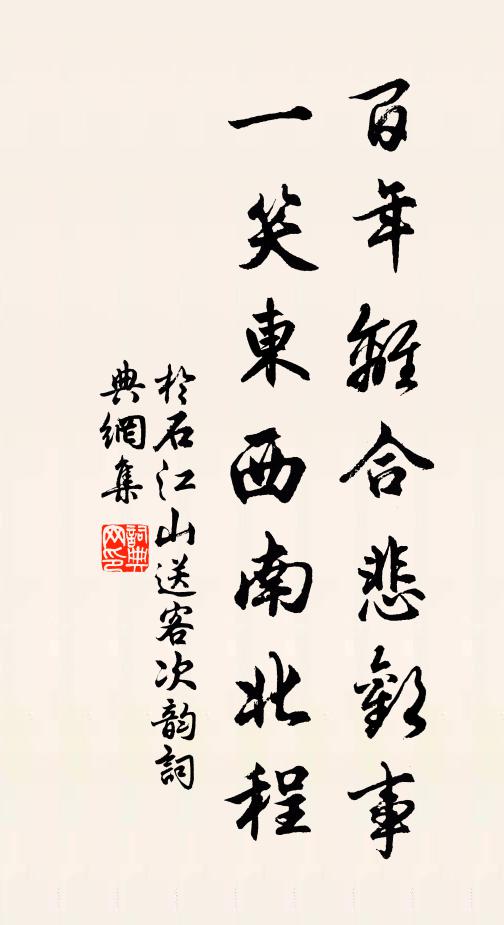 百年離合悲歡事
一笑東西南北程
於石江山送客次韻詞
典網集
詞典網印